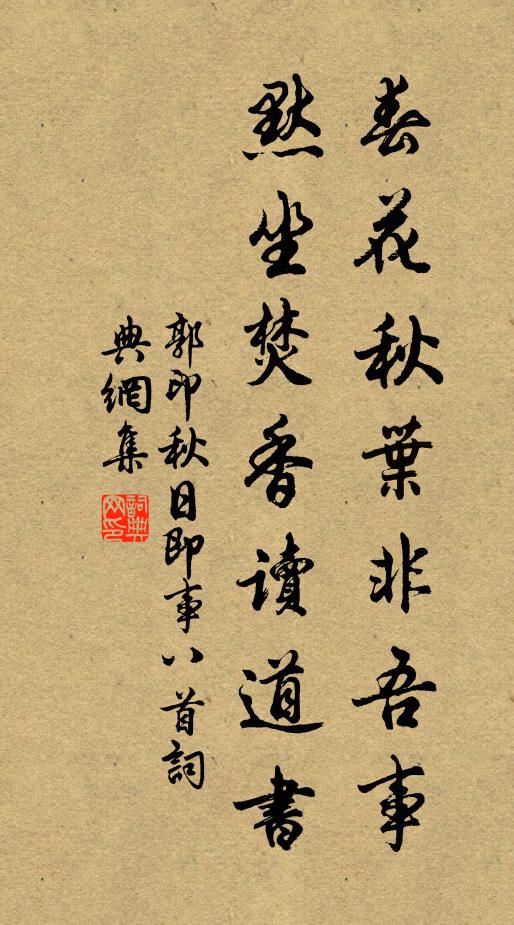 春花秋葉非吾事
默坐焚香讀道書
郭印秋日即事八首詞
典網集
詞典网印